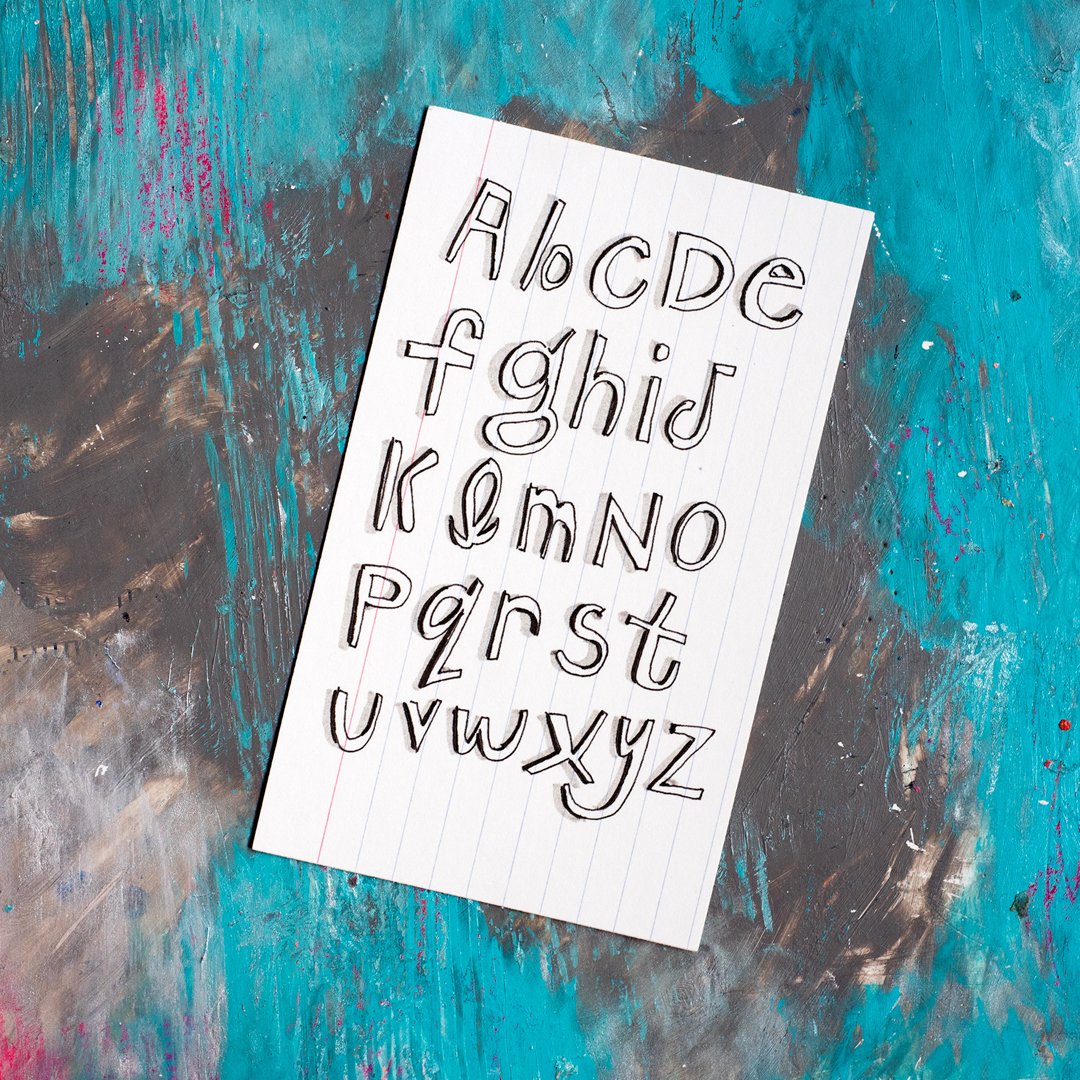 AbCDe
fghiJ
KlmNO
Pqrst
uvwxyz